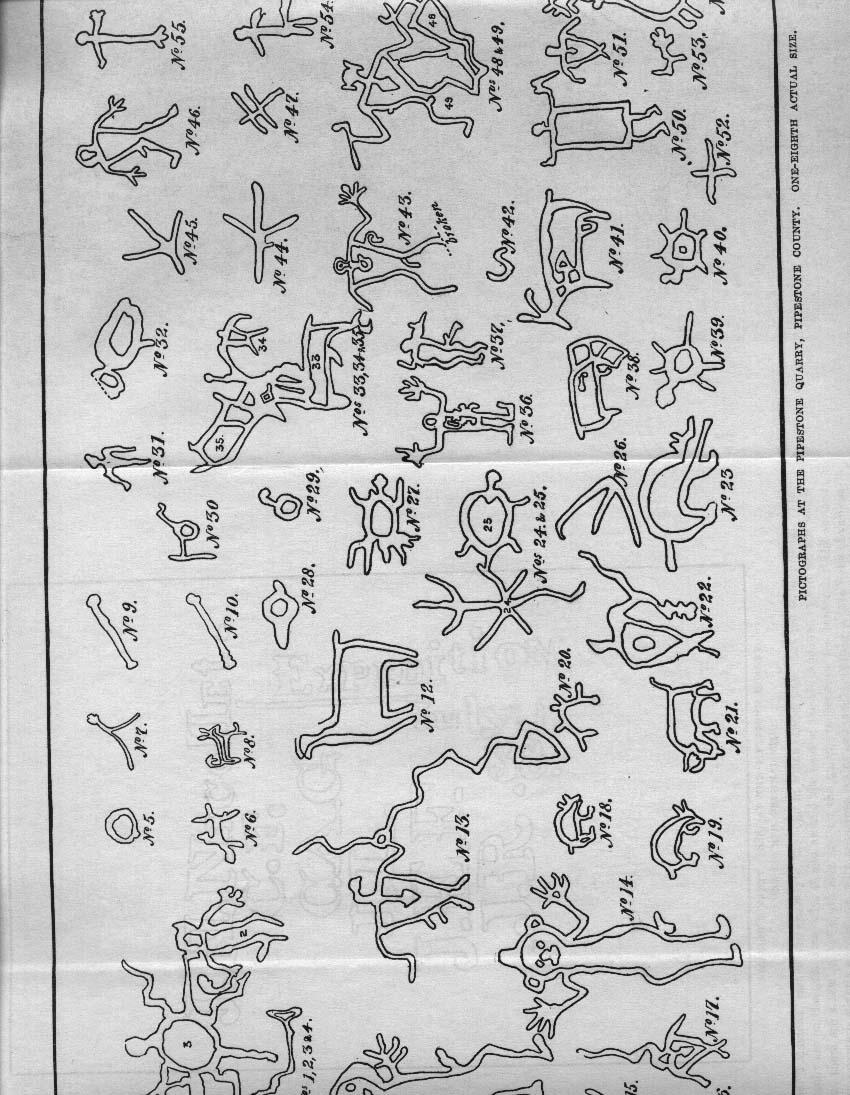 Nº 5.
Nº 7.
Nº 9.
Nº 31.
Nº 32.
Nº 45.
Nº 46.
Nº 55.
3
2
Nºs 1,2,3&4.
Nº 6.
Nº 8.
Nº 10.
Nº 30
Nº 28.
Nº 29.
35.
34
33
Nºs 33,34&35.
Nº 44.
Nº 47.
Nº 54.
Nº 13.
Nº 12.
Nº 27.
Nº 37.
Nº 43.
broken
48
49
Nºs 48&49.
Nº 14.
Nº 18.
Nº 20.
25
Nºs 24.&25.
Nº 36.
Nº 26.
Nº 38.
Nº 42.
Nº 41.
Nº 50.
Nº 51.
15.
Nº 17.
Nº 19.
Nº 21.
Nº 22.
Nº 23
Nº 39.
Nº 40.
Nº 52.
Nº 53.
PICTOGRAPHS AT THE PIPESTONE QUARRY, PIPESTONE COUNTY. ONE-EIGHTH ACTUAL SIZE.